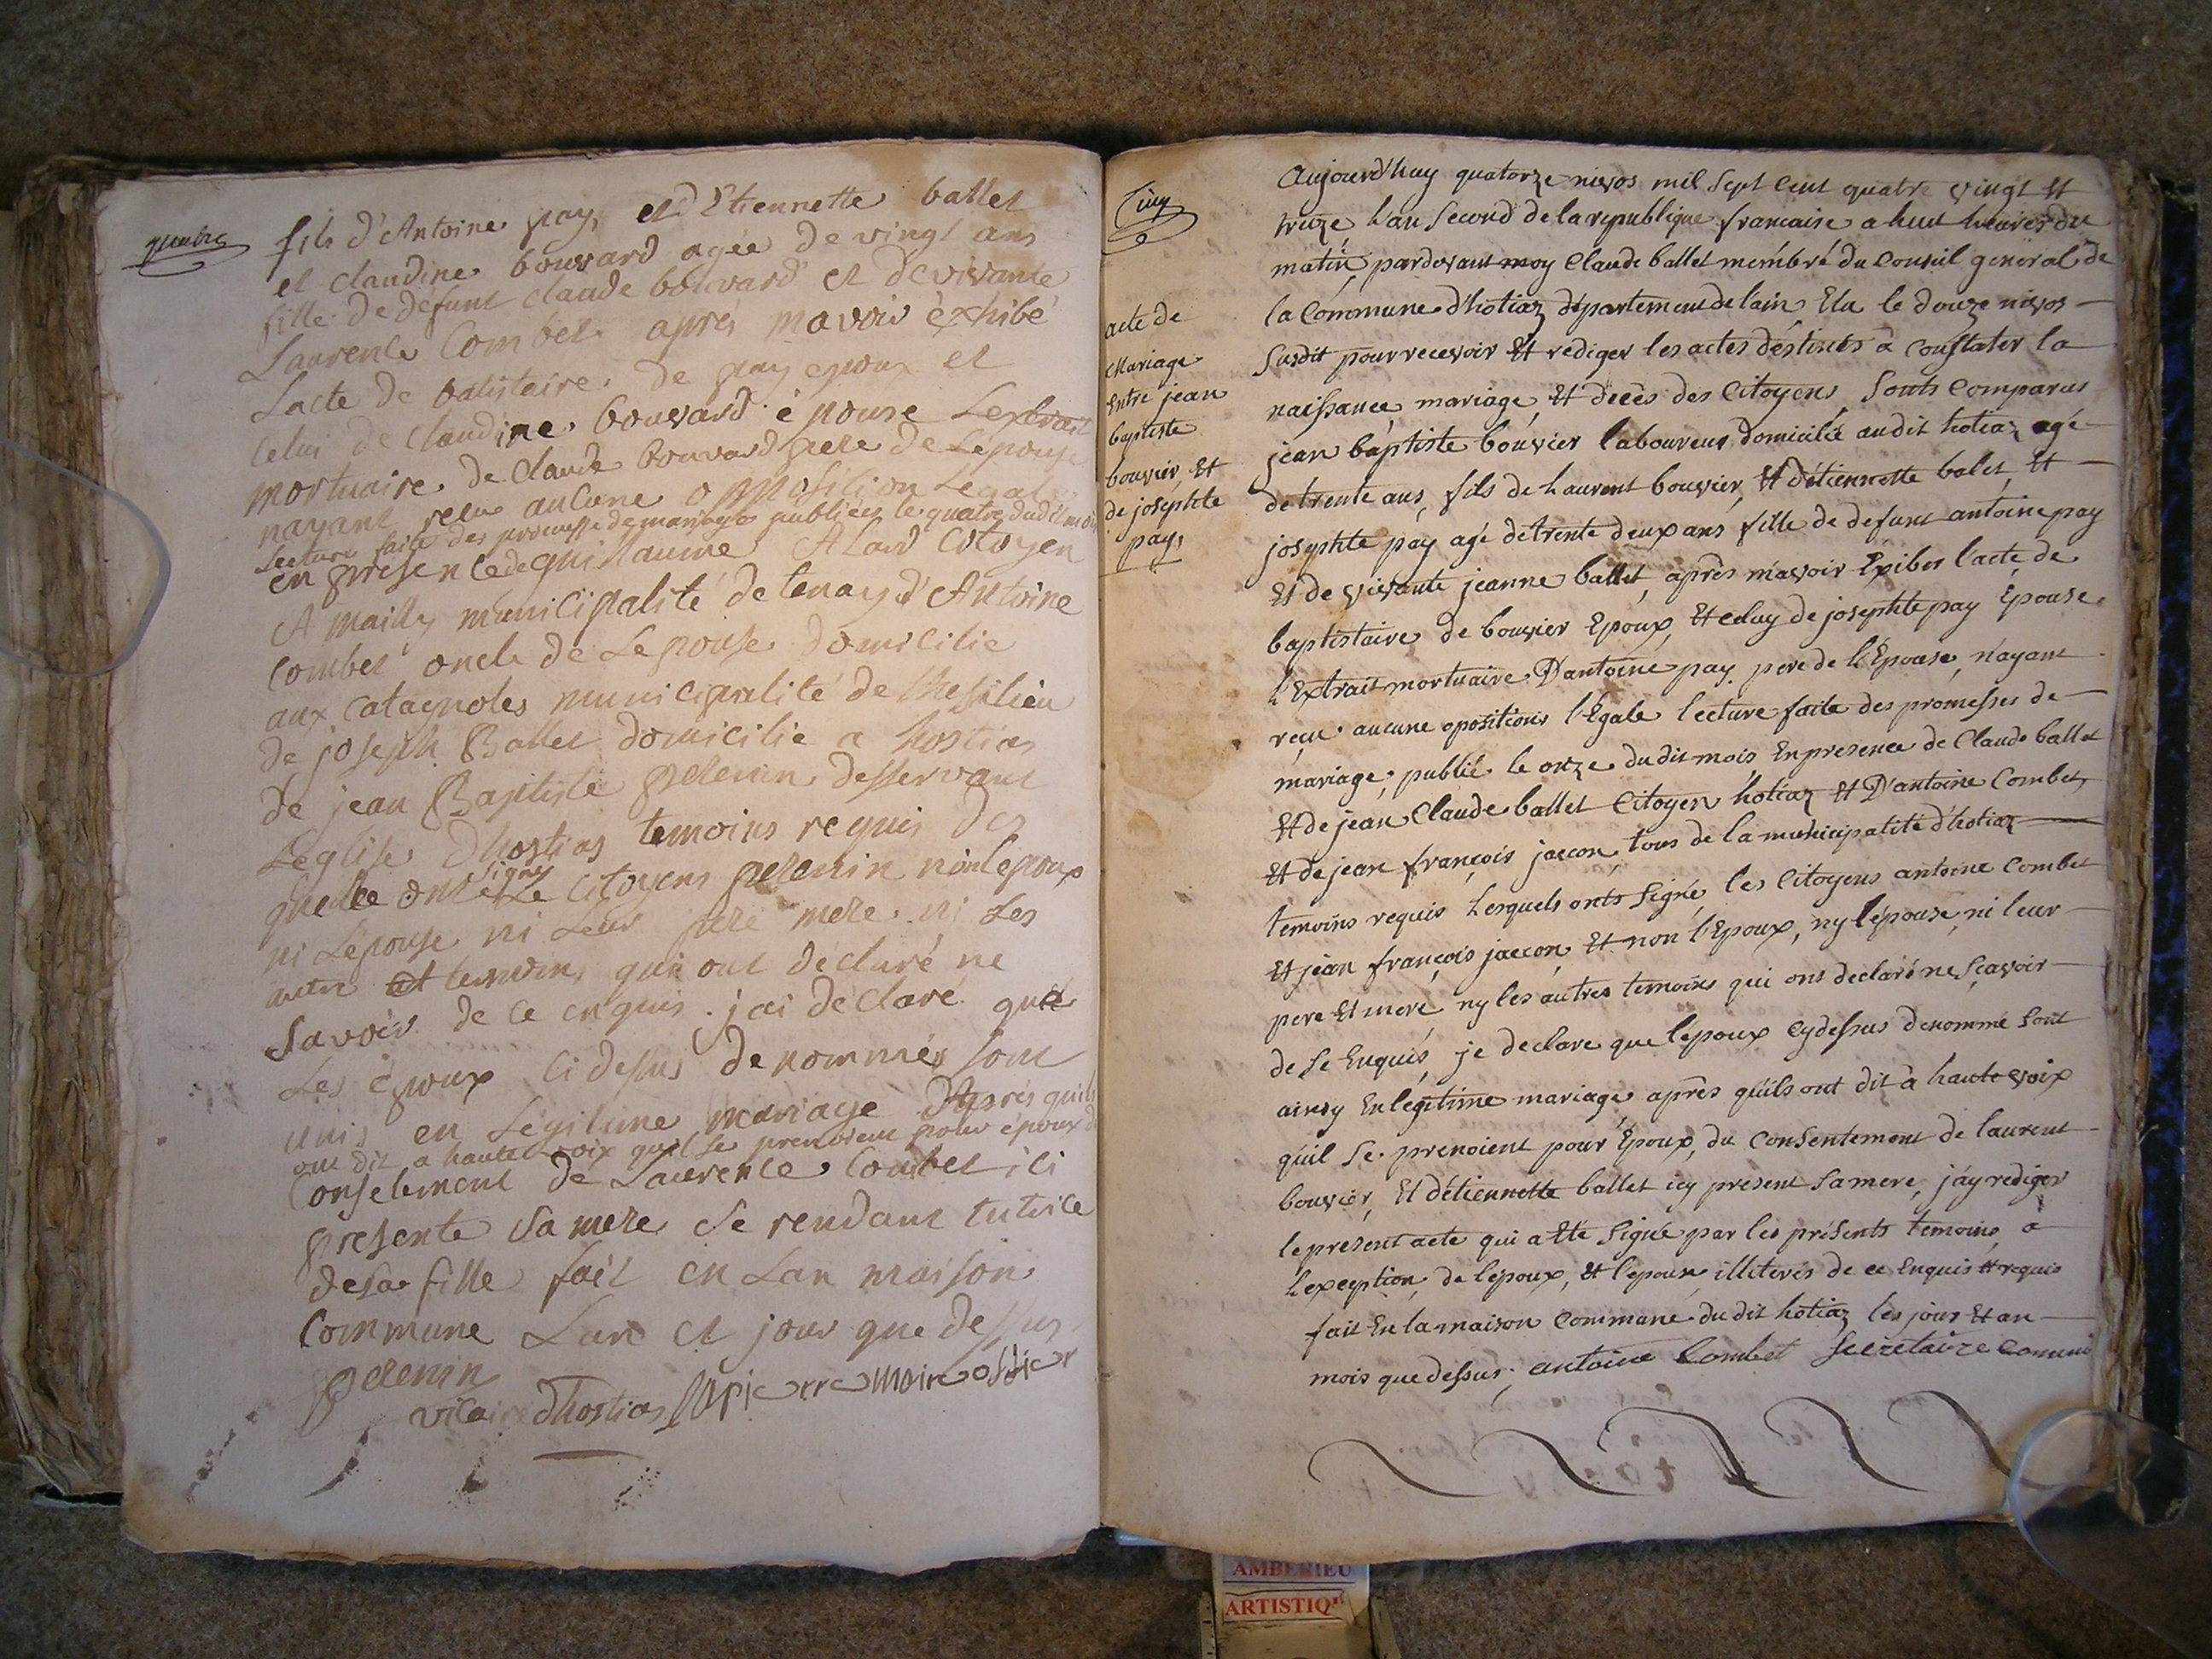 quatre
fils d'Antoine pay, et d'Etiennette ballet
et claudine bouvard agée de vingt ans
fille de defunt claude bouvard et de vivante
Laurence Combet après m'avoir éxhibé
Lacte de batistaire de pay epoux et
celui de claudine bouvard épouse Lextrait
mortuaire de Claude bouvard pere de Lépouse
nayant recu aucune opposition Legale
Lecture faite des promesse de mariage publiées le quatre dudit mois
en presence de guillaume Alard Citoyen
A mailly municipalité de tenay d'Antoine
combet oncle de Lepouse domicilie
aux Catagnoles municipalité de
de joseph Ballet domicilie a hostias
de jean Baptiste pelenin desservant
Leglise d'hostias temoins requis des
signé
quelle ont Le citoyens pelenin non lepoux
ni Lépouse ni Leur pere mere ni Les
autre temoins qui ont déclaré ne
Savoir de ce enquis. j'ai déClaré que
Les époux ci dessus denommés sont
unis en Légitime mariage Après quils
ont dit a haute voix quil se prenoient pour époux du
Consetement de Laurence Combet ici
presente sa mere se rendant tutrice
de sa fille fait en Lan maison
Commune Lan et jour que dessus
pelenin
vicaire d'hostias Lapierre maire officier
Cinq
acte de
Mariage
Entre jean
baptiste
bouvier, Et
de josephte
pay,
Aujourd'huy quatorze nivos mil sept cent quatre vingt Et
treize l'an second de la republique francaise a huit heures du
matin, pardevant moy Claude ballet membré du Conseil general de
la Commune d'hotiaz département de lain Elu le douze nivos
susdit pour recevoir Et rediger les actes déstinés à constater la
naissance, mariage, Et decès des Citoyens Sonts Comparus
jean baptiste bouvier laboureur domicilié audit hotiaz agé
de trente ans, fils de Laurent bouvier, Et d'étiennette balet, Et
josephte pay agé de trente deux ans fille de defunt antoine pay
Et de vivante jeanne ballet, après m'avoir Exiber l'acte de
baptistaire de bouvier Epoux, Et celuy de josephte pay Épouse
L'Extrait mortuaire D'antoine pay, pere de l'Épouse, n'ayant
reçu aucune opositions l'Egale lecture faite des promesses de
mariage, publié le onze dudit mois, En presence de Claude ballet
Et de jean Claude ballet Citoyen hotiaz Et D'antoine Combet,
Et de jean françois jaccon, tous de la municipalité d'hotiaz
temoins requis Lesquels onts signé, les Citoyens antoine combet
Et jean françois jaccon, Et non l'Epoux, ny l'épouse, ni leur
pere Et mere ny les autres temoins qui ons declaré ne sçavoir
de se Enquis, je declare que l'epoux cy dessus denommé sont
ainsy En legitime mariage après qu'ils ont dit à haute voix
qu'il se prenoient pour Époux, du Consentement de laurent
bouvier, Et d'étiennette ballet icy present sa mere, j'ay rediger
le present acte qui a Été signé par les présents temoins a
L'exception de l'époux, et l'epouse illiterés de ce Enquis Et requis
fait En la maison Commune du dit hotiaz les jours Et an
mois que dessus; antoine Combet Secretaire
AMBERIEU
ARTISTIQ